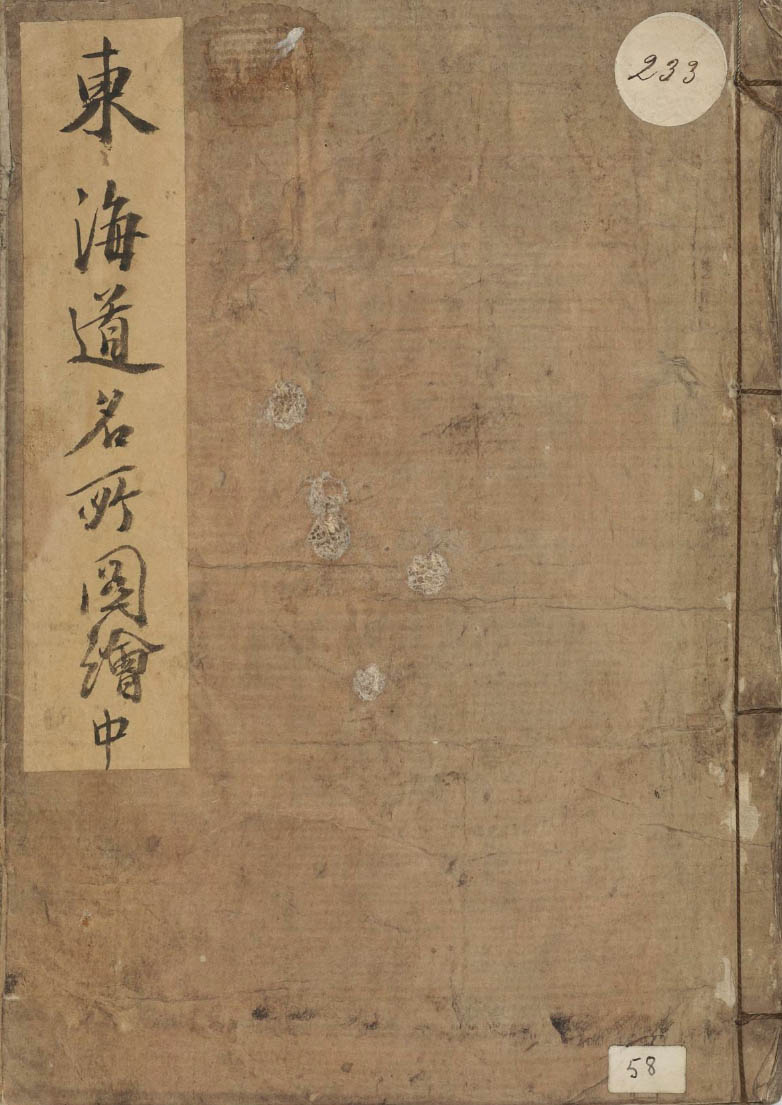 東海道名所圖繪中
233
58